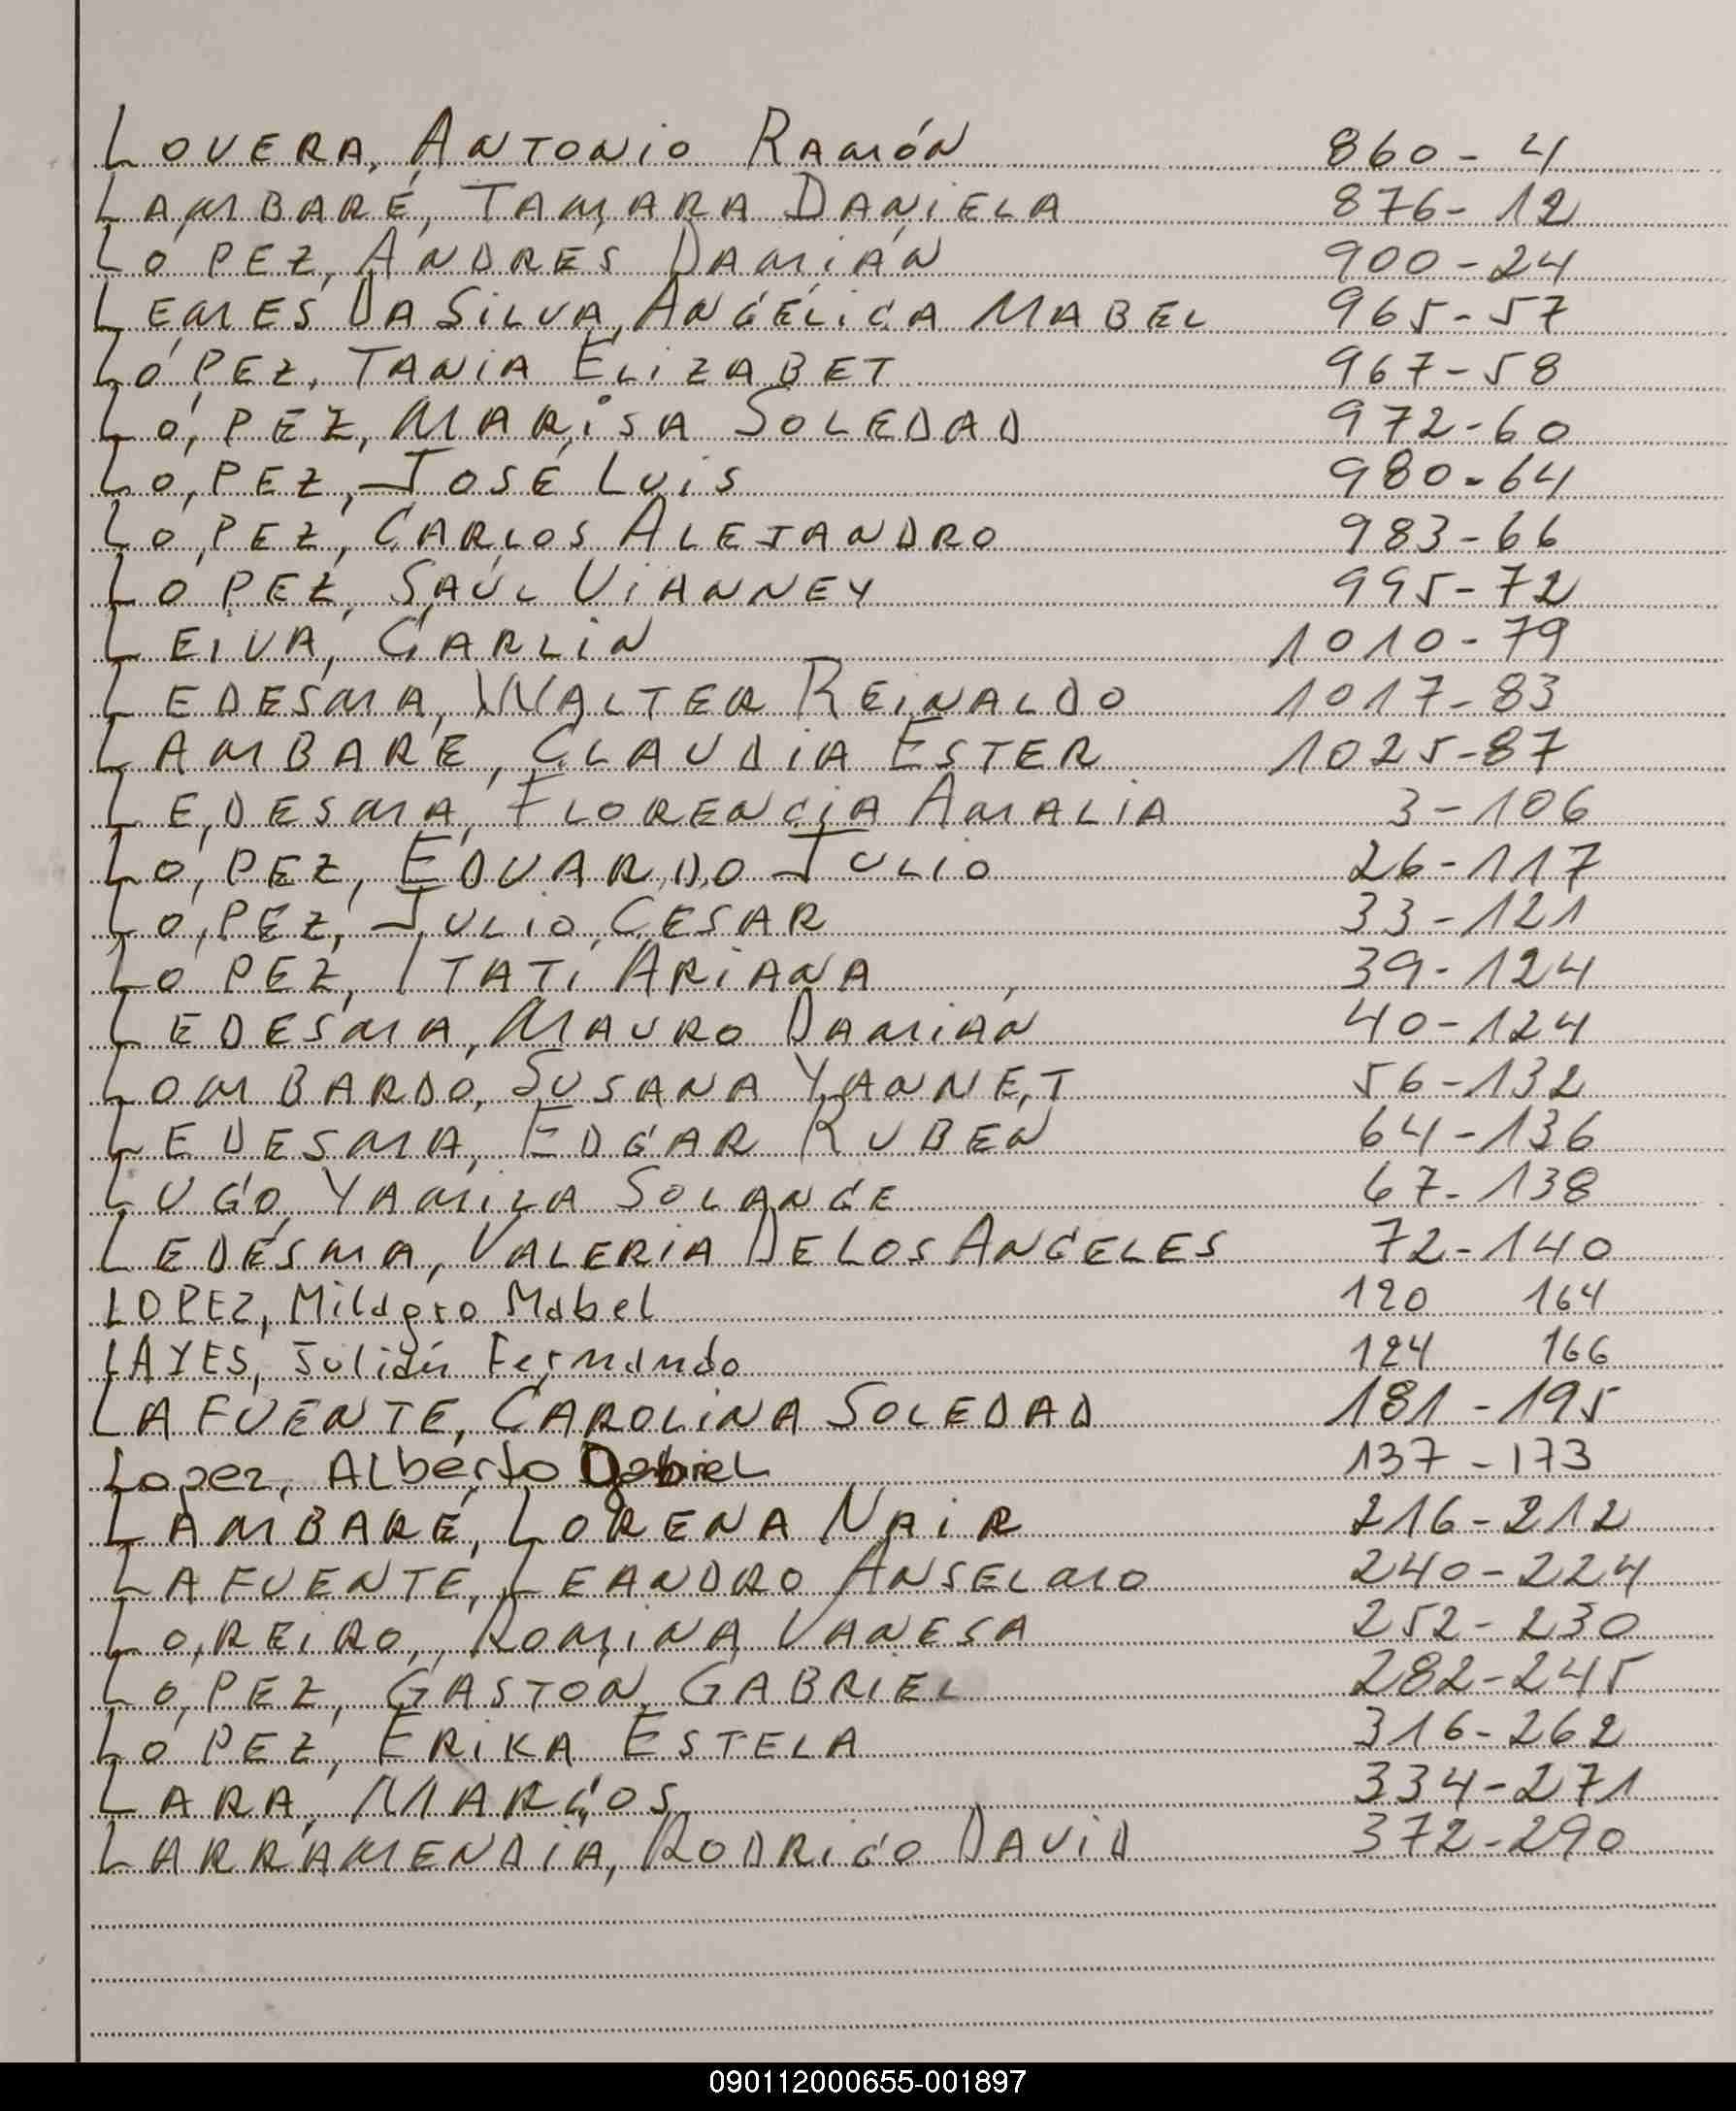 LOVERA, ANTONIO RAMÓN 860 - 4
LAMBARÉ, TAMARA DANIELA 876 - 12
LOPEZ, ANDRES DAMIÁN 900 - 24
LEMES DA SILVA, ANGÉLICA MABEL 965 - 57
LÓPEZ, TANIA ELIZABET 967 - 58
LÓPEZ, MARISA SOLEDAD 972 - 60
LÓPEZ, JOSÉ LUIS 980 - 64
LÓPEZ, CARLOS ALEJANDRO 983 - 66
LÓPEZ, SAÚL VIANNEY 995 - 72
LEIVA, CARLIN 1010 - 79
LEDESMA, WALTER REINALDO 1017 - 83
LAMBARÉ, CLAUDIA ESTER 1025 - 87
LEDESMA, FLORENCIA AMALIA 3 - 106
LÓPEZ, EDUARDO JULIO 26 - 117
LÓPEZ, JULIO CESAR 33 - 121
LÓPEZ, ITATÍ ARIANA 39 - 124
LEDESMA, MAURO DAMIAN 40 - 124
LOMBARDO, SUSANA YANNET 56 - 132
LEDESMA, EDGAR RUBEN 64 - 136
LUGO, YAMILA SOLANGE 67 - 138
LEDESMA, VALERIA DE LOS ANGELES 72 - 140
LOPEZ, Milagro Mabel 120 164
LAYES, Julián Fernando 124 166
LAFUENTE, CAROLINA SOLEDAD 181 - 195
Lopez, ALberto Gabriel 137 - 173
LAMBARÉ, LORENA NAIR 216 - 212
LAFUENTE, LEANDRO ANSELMO 240 - 224
LOREIRO, ROMINA VANESA 252 - 230
LÓPEZ, GASTON GABRIEL 282 - 245
LÓPEZ, ERIKA ESTELA 316 - 262
LARA, MARCOS 334 - 271
LARRAMENDIA, RODRIGO DAVID 372 - 290
090112000655-001897